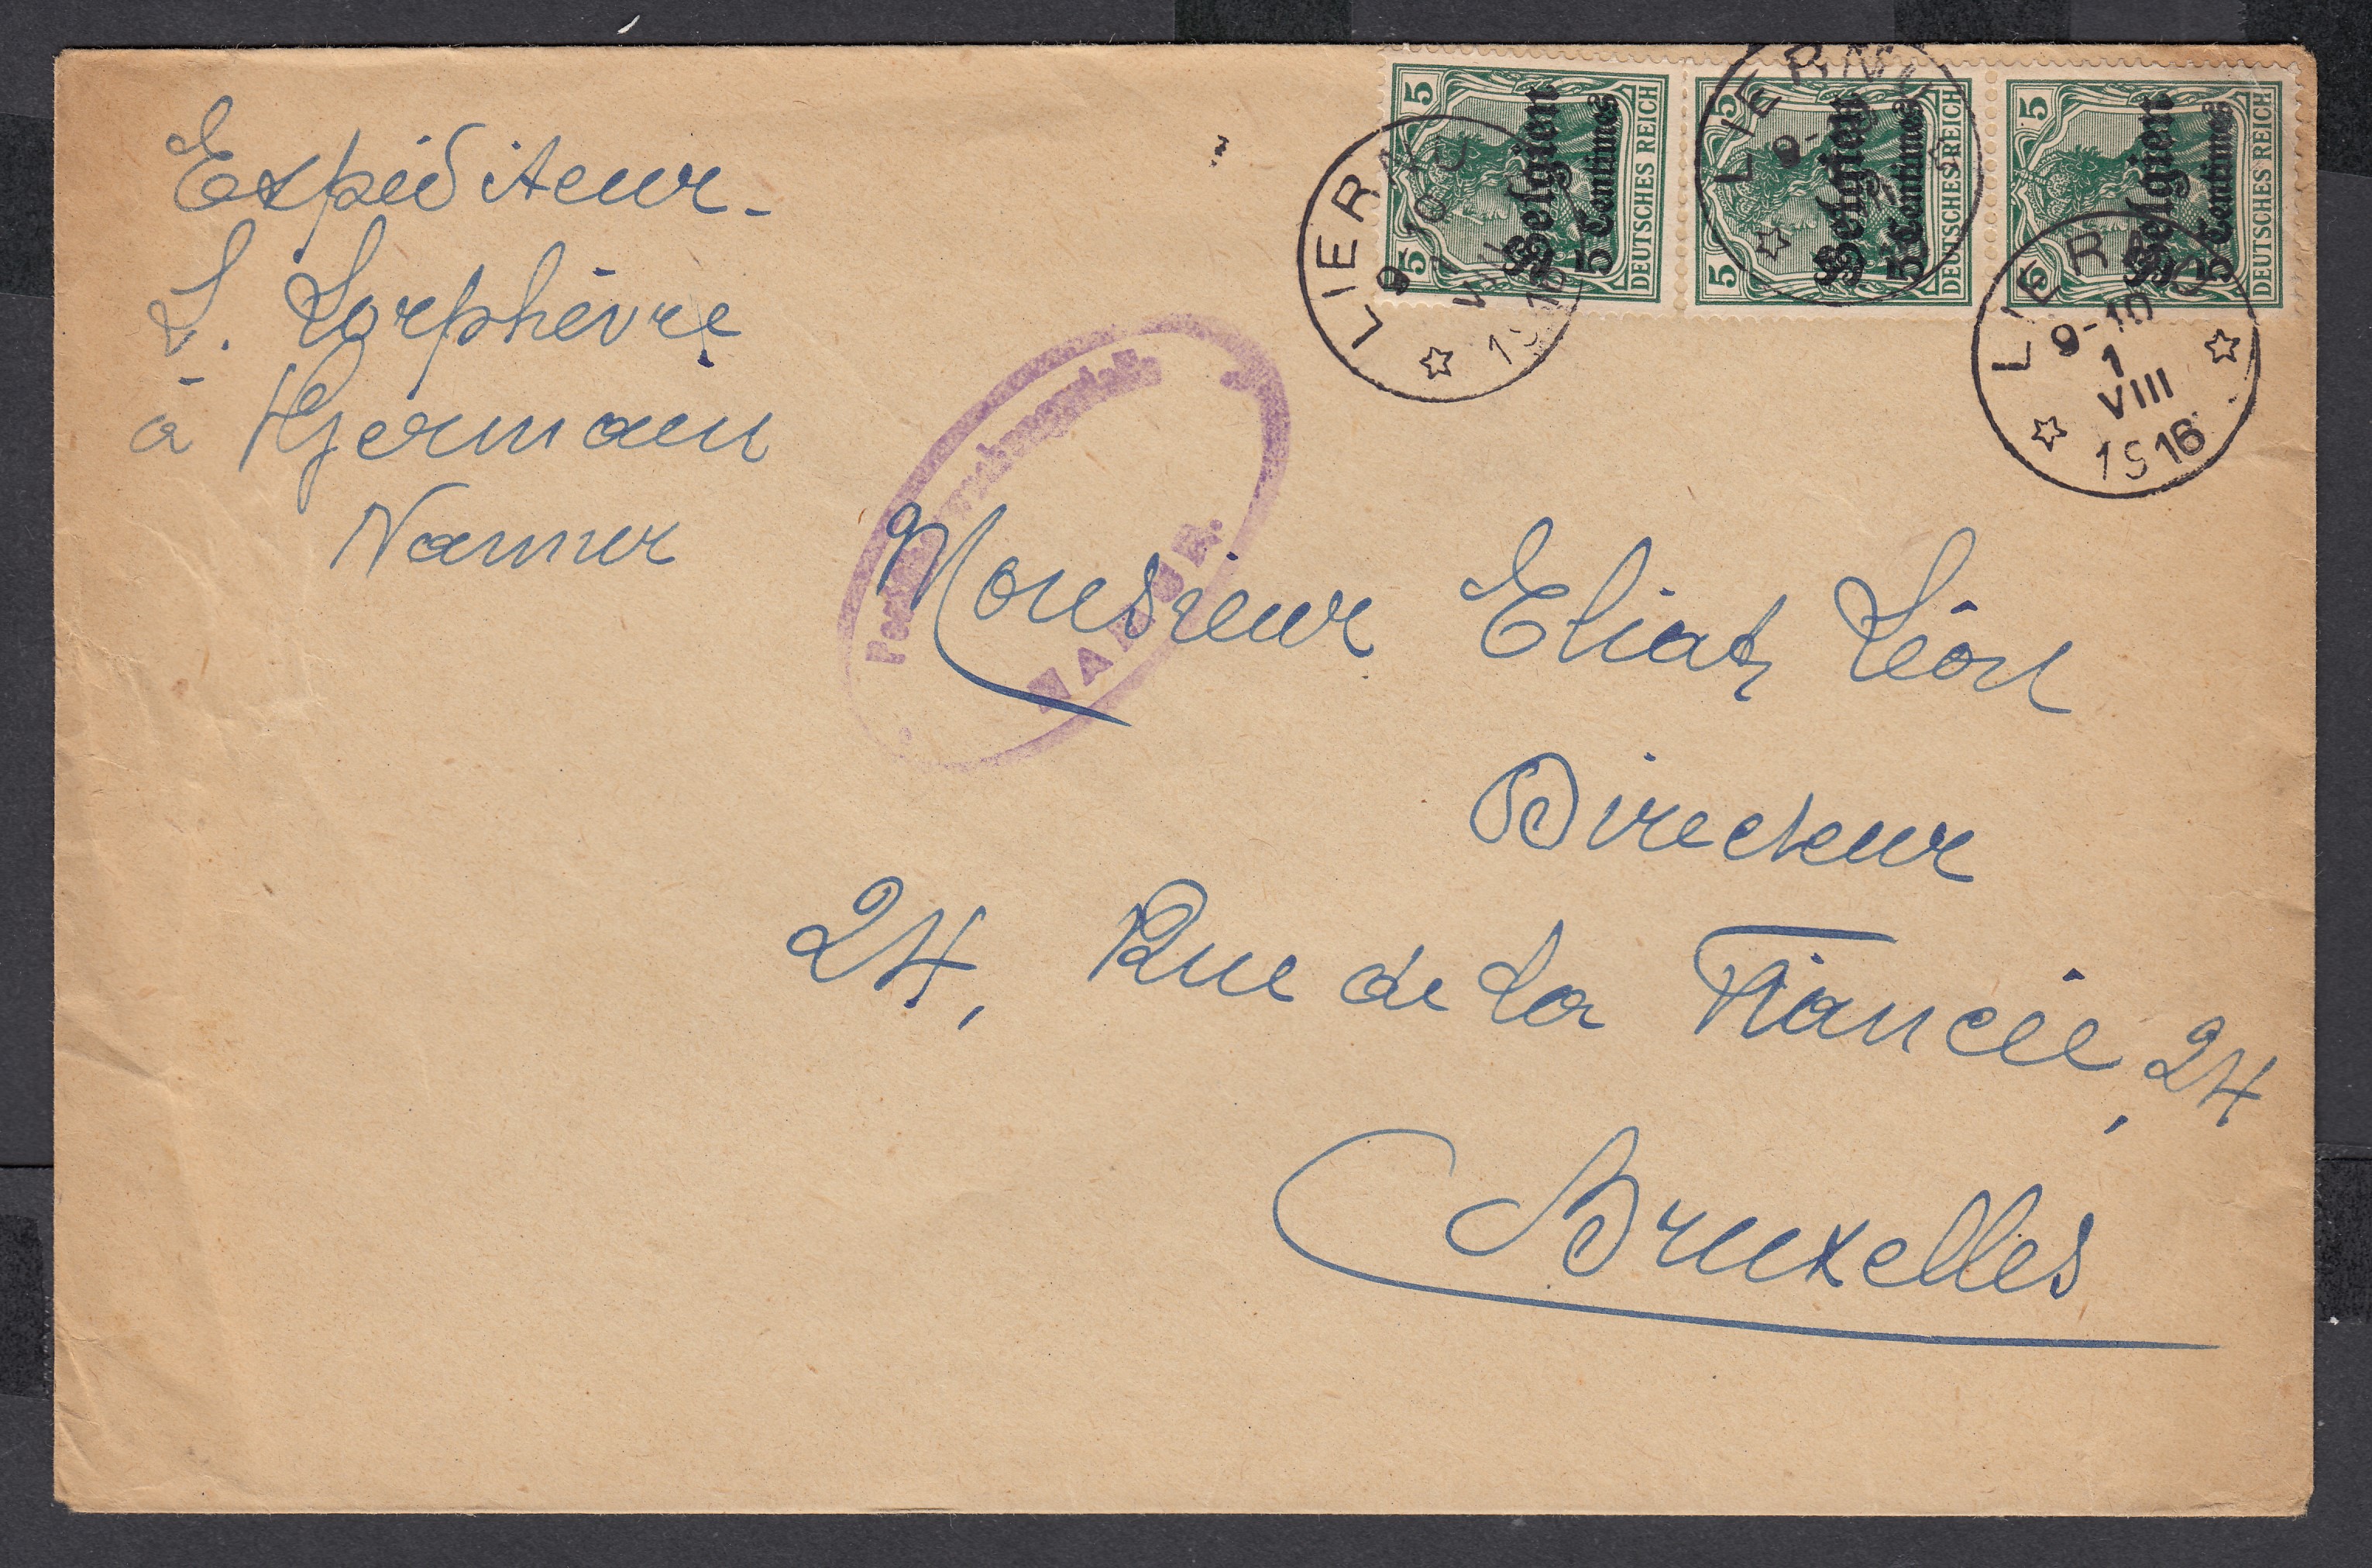 Expéditeur.
L. Lorphèvre
à Hermain
Namur
5 5 DEUTSCHES REICH
Belgien
5 Centimes
5 5 DEUTSCHES REICH
Belgien
5 Centimes
5 5 DEUTSCHES REICH
Belgien
5 Centimes
LIERNU
9-10
1
VIII
1916
LIERNU
LIERNU
9-10
1
VIII
1916
NAMUR.
Monsieur Eliat, Léon
Directeur
24, Rue de la Fiancée, 24
Bruxelles